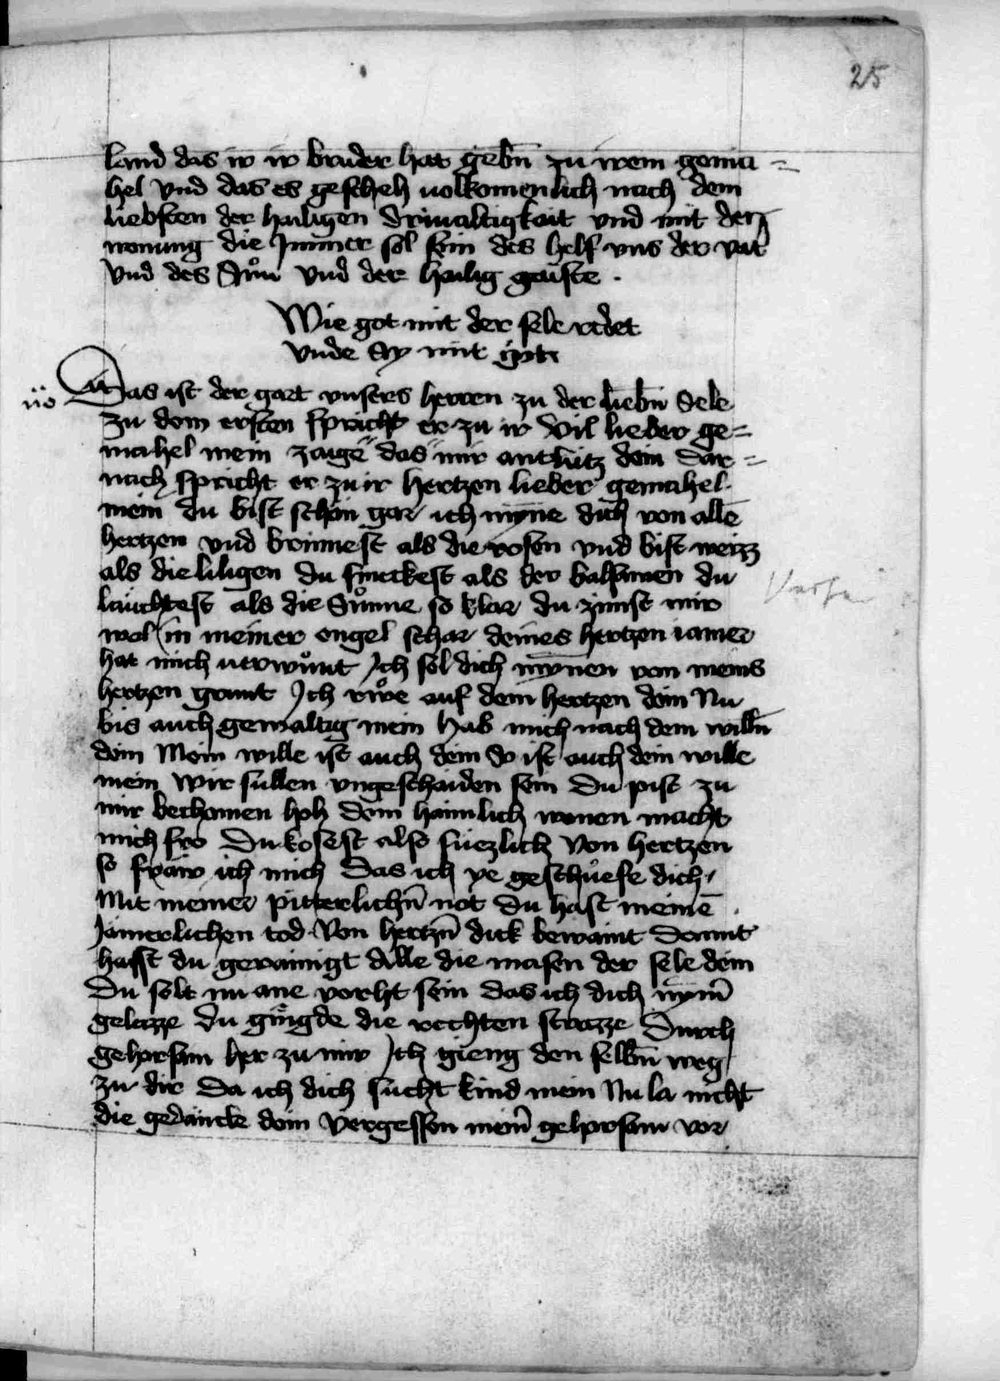 25
land das ir ir bruder hat gebn̄ zu irem gema=
hel vnd das es gescheh uolkomenlich nach dem
liebsten der hailigen driualtigkait vnd mit der
monung die Jmmer sol sein des helf vns der vat̄
vnd des Suͦn vnd der hailig gaiste .
Wie got mit der sele redet
vnde Sy mit got
Das ist der gart vnsers herren zu der liebn̄ Sele
zu dem ersten spricht er zu ir Vil lieber ge=
mahel mein zaige das mir antlutz dein Dar=
nach spricht er zu ir hertzen lieber gemahel
mein du bist schön gar ich myne dich von allē
hertzen vnd brinnest als die rosen vnd bist weizz
als die liligen du smekest als der balsamen du
läuchtest als die Suͦnne so klar du zimst mir
wol in meiner engel schar deines hertzen iamer
hat mich uerwuͦnt Jch sol dich mynnen von meins
hertzen grunt Jch rwͦe auf dem hertzen dein Nu
bis auch gewaltig mein hab mich nach dem willn̄
dein Mein wille ist auch dein So ist auch dein wille
mein Wir sullen vngeschaiden sein Du pist zu
mir bechomen hoh dein haimlich wonen macht
mich fro Du kosest also süezlich Von hertzen
so fräw ich mich Das ich ye geschuͦefe dich
Mit meiner pitterlichn̄ not Du hast meinē
Jämerlichen tod Von hertzn̄ dick bewaint Domit
hasst du gerainigt Alle die masen der sele dein
Du solt nu ane vorht sein das ich dich nym̄
gelazze du gingde die rechten strazze Durch
gehorsam her zu mir Jch gieng den selbn̄ weg
zu dir Da ich dich sucht kind mein Nu la nicht
die gedäncke dein vergessen mein̄ gehorsam vor